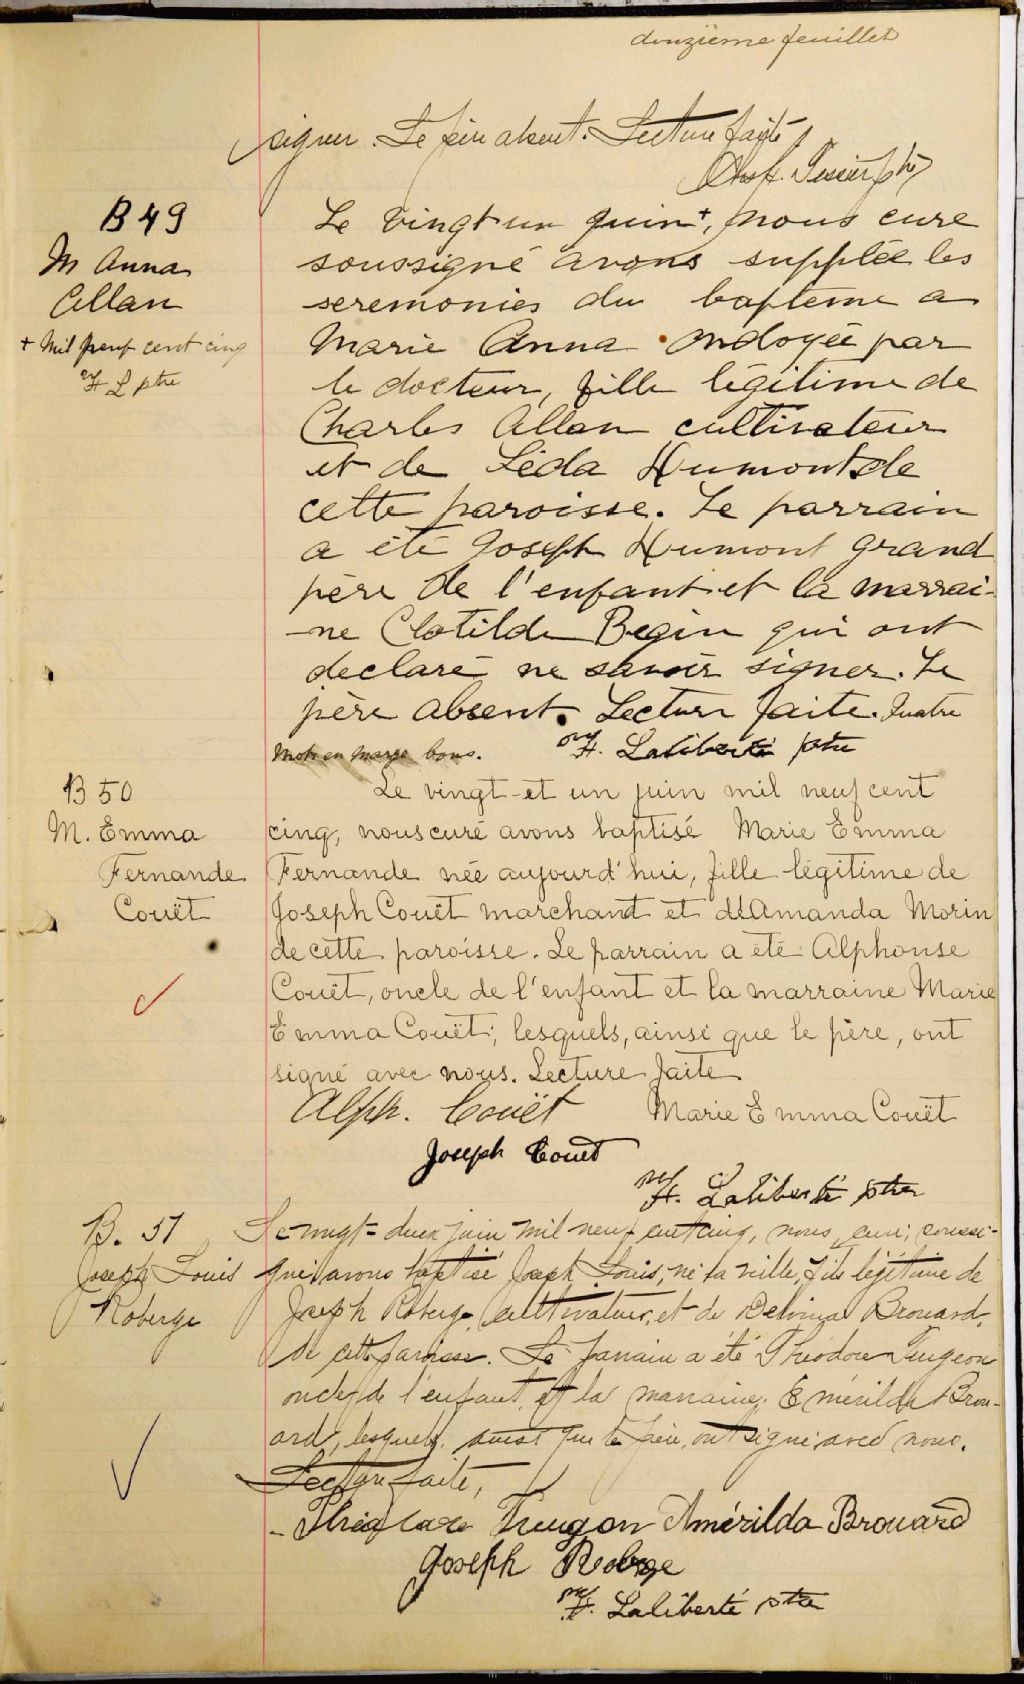 douzième feuillet
signer. Le père absent. Lecture faite
Ptre
B 49
M Anna
Allan
+ Mil neuf cent cinq
L ptre
Le vingt un juin+, nous cure
soussigné avons supplée les
seremonies du bapteme a
Marie Anna ondoyée par
le docteur, fille légitime de
Charles Allan cultivateur
et de Léda Dumont de
cette paroisse. Le parrain
a été Joseph Dumont grand
père de l'enfant et la marrai-
-ne Clotilde Begin qui ont
declaré ne savoir signer. Le
père absent. Lecture faite. Quatre
mots en marge bons. H. Laliberté ptre
B 50
M. Emma
Fernande
Couët
Le vingt-et un juin mil neuf cent
cinq, nous curé avons baptisé Marie Emma
Fernande née aujourd'hui, fille légitime de
Joseph Couët marchand et de Amanda Morin
de cette paroisse. Le parrain a été Alphonse
Couët, oncle de l'enfant et la marraine Marie
Emma Couët; lesquels, ainsi que le père, ont
signé avec nous. Lecture faite
Alph. Couët Marie Emma Couët
Joseph Couet
H. Laliberté ptre
B. 51
Joseph Louis
Roberge
Le vingt=deux juin mil neuf cent cinq, nous, curé, soussi-
gné avons baptisé Joseph Louis, né la veille, fils légitime de
Joseph Roberge, cultivateur, et de Delvina Brouard,
de cette paroisse. Le parrain a été Théodore Turgeon
oncle de l'enfant, et la marraine, Emérilda Brou-
ard, lesquels, ainsi que le père, ont signé avec nous.
Lecture faite,
Turgon Amérilda Brouard
Joseph Roberge
H. Laliberté ptre